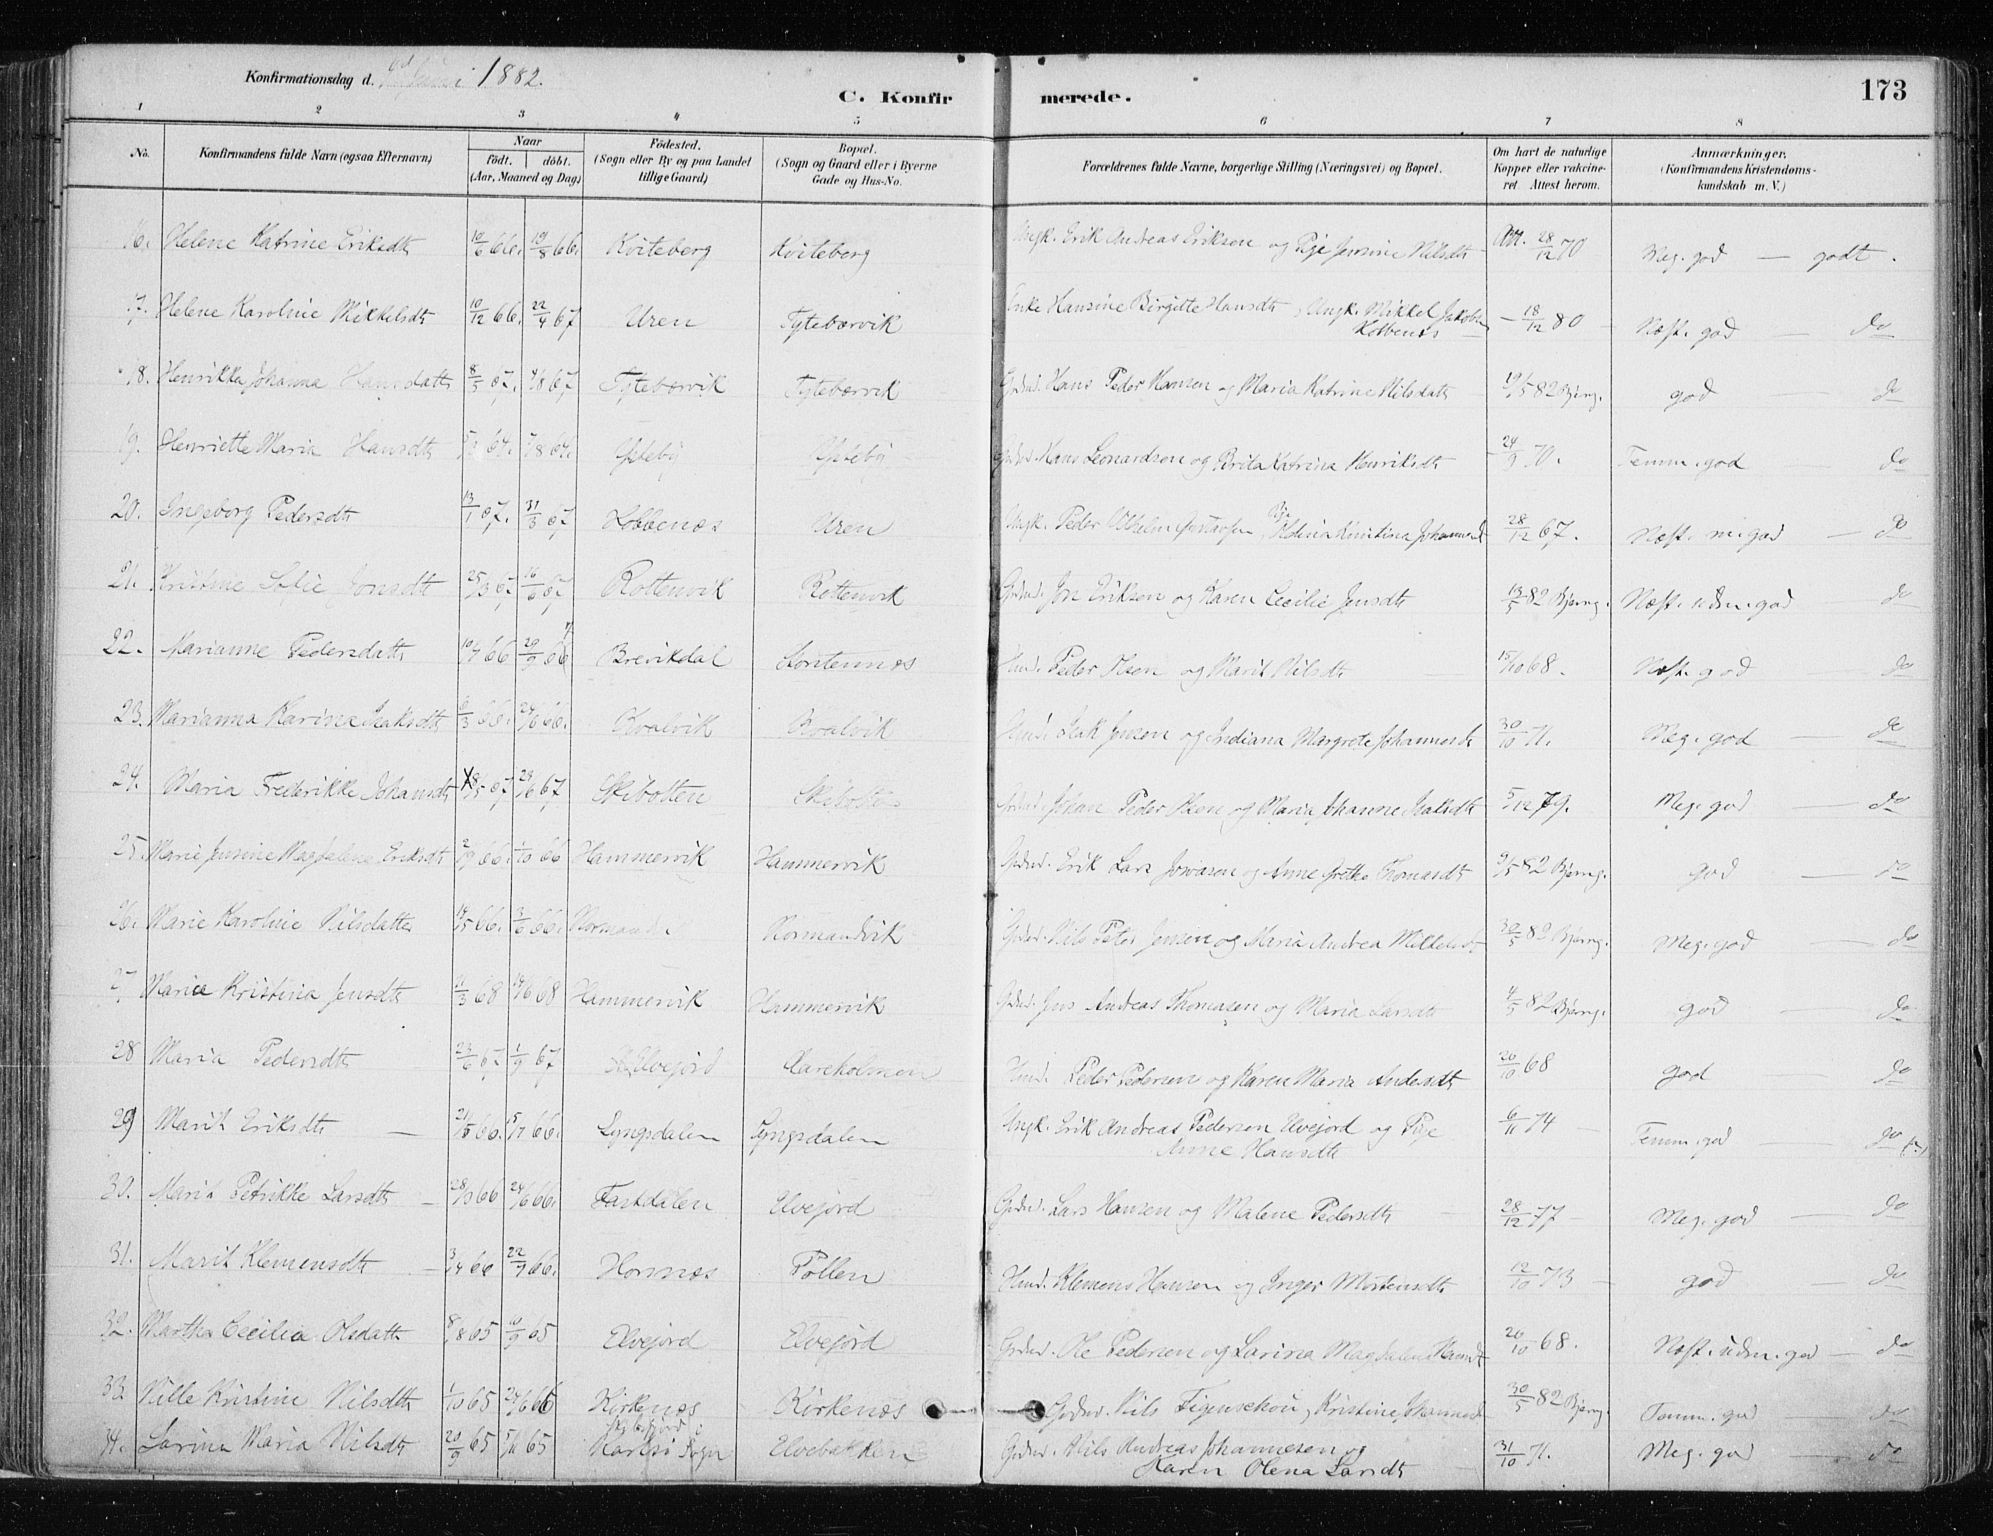 Konfirmationsdag d. Juni 1882.
C. Konfir merede. 173
1 2 3 4 5 6 7 8
No. Konfirmandens fulde Navn (ogsaa Efternavn) Naar født. døbt. (Aar, Maaned og Dag) Fødested. (Sogn eller By og paa Landet tillige Gaard) Bopæl. (Sogn og Gaard eller i Byerne Gade og Hus-No. Forældrenes fulde Navne, borgerlige Stilling (Næringsvei) og Bopæl. Om havt de naturlige Kopper eller vakcineret Attest herom. Anmærkninger. (Konfirmandens Kristendomskundskab m. V.)
16. Helene Katrine Eriksdtr 10/6 66. 19/8 66. Kviteberg Kviteberg Ungk. Erik Andreas Eriksen og Pige Jensine Nilsdtr Att. 28/12 70 Meg. god — godt.
17. Helene Karoline Mikkelsdtr 10/12 66. 22/4 67 Uren Tytebærvik Enke Hansine Birgitte Hansdtr, Ungk. Mikkel Jakobsen
Kobbenes — 18/12 80 Næst. god — do
18. Henrikke Johanna Hansdatter 8/5 67. 4/8 67 Tytebærvik Tytebærvik Gdmd. Hans Peder Hansen og Maria Katrine Nilsdatter 19/5 82 Bjerng. god — do
19. Henriette Maria Hansdtr 64. /8 64. Gdmd. Hans Leonardsen og Berita Katrina Henriksdtr 24/9 70. Temm. god — do
20. Ingeborg Pedersdtr 13/1 67. 31/3 67 Kobbenæs Uren Ungk. Peder Vilhelm Gustavsen, Pige Kristina Johannesd 28/12 67. Næst. m. god — do
21. Kristine Sofie Jonsdtr 25/3 67 16/6 67 Rottenvik Rottenvik Gdmd. Jon Eriksen og Karen Cecilie Jensdtr 13/5 82 Bjerng. Næst. udm. god — do
22. Marianne Pedersdatter 10/7 66 29/9 66 Brevikdal Stortennes Hmd. Peder Olsen og Marit Nilsdtr 15/10 68. Næst. god — do
23. Marianna Karina Isaksdtr 6/3 66. 24/6 66. Kvalvik Kvalvik Hmd. Isak Jensen og Indiana Margrete Johannesd 30/10 71. Meg. god — do
24. Maria Frederikke Johansdtr 18/5 67 29/6 67 Skibotten Skibotten Gdmd. Johan Peder Olsen og Maria Johanne Isaksdtr 5/12 79. Meg. god — do
25. Marie Jensine Magdalena Eriksdtr 2/9 66. 1/10 66 Hammervik Hammervik Gdmd. Erik Lars Jonasen og Anne Grethe Thomasdtr 9/5 82 Bjerng. god — do
26. Marie Karoline Nilsdatter 14/5 66. 3/6 66. Normandvik Gdmd. Nils Peter Jensen og Maria Andrea Mikkelsdtr 30/5 82 Bjerng. Meg. god — do
27. Maria Kristina Jensdtr 11/3 68 14/6 68 Hammervik Hammervik Gdmd. Jens Andreas Thomasen og Maria Larsdtr 4/5 82 Bjerng. god — do
28 Maria Pedersdtr 23/6 67. 1/9 67 Elvejord Hareholmen Hmd. Peder Pedersen og Karen Maria Andersdtr 20/10 68 god — do
29 Marit Eriksdtr — 21/5 66. 5/7 66. Lyngsdalen Lyngsdalen Ungk. Erik Andreas Pedersen Elvejord og Pige
Anne Hansdtr 6/11 74 — Temm. god — do
30. Marit Petrikke Larsdtr — 28/3 66 24/6 66. Fastdalen Elvejord Gdmd. Lars Hansen og Malene Pedersdtr — 28/12 77 — Meg. god — do
31. Marit Klemensdtr — 3/4 66 22/7 66. Hornæs Pollen Hmd. Klemens Hansen og Inger Mortensdtr 12/10 73 — god — do
32. Martha Cecilia Olsdatter 8/8 65 10/9 65 Elvejord Elvejord Gdmd. Ole Pedersen og Larina Magdalena Hansdtr 20/10 68. Næst. udm. god — do
33. Nille Kristine Nilsdtr 1/10 65 24/6 66 Kirkenæs Kirkenæs Gdmd. Nils Figenschou, Kristine Johannesd 30/5 82 Bjerng. Temm. god — do
34. Larina Maria Nilsdtr 20/9 65 65 Karlsø Sogn Elvebakken Gdmd. Nils Andreas Johannesen og
Karen Olena Larsdtr — 31/10 71. Meg. god — do